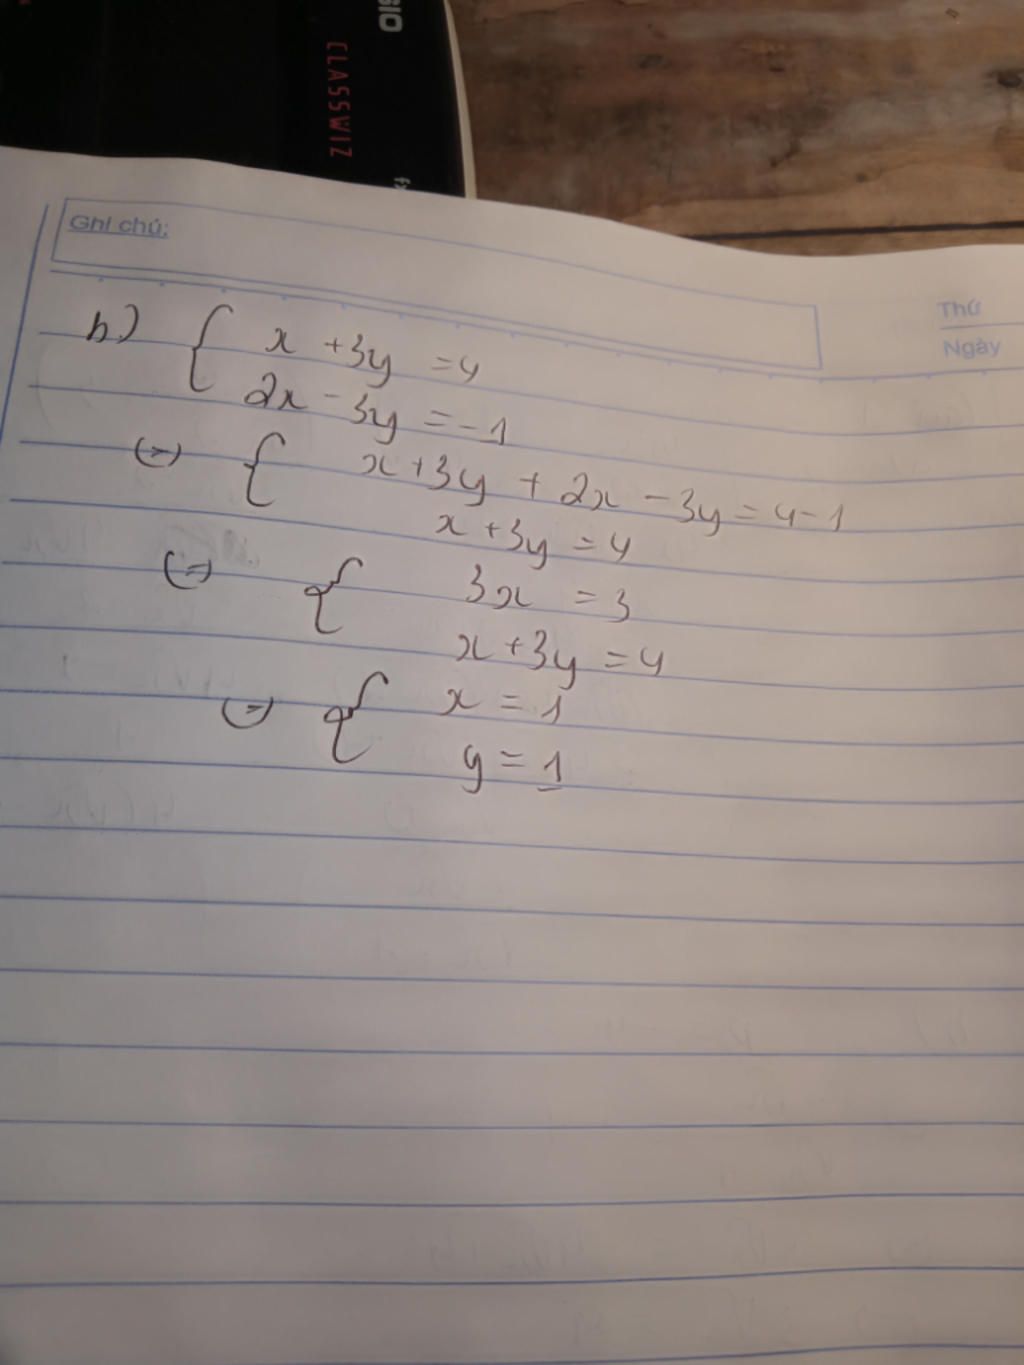 SIO
CLASSWIZ
fx
Ghi chú:
Thứ
Ngày
b) { x + 3y = 4
2x - 3y = -1
(=) { x + 3y + 2x - 3y = 4 - 1
x + 3y = 4
(=) { 3x = 3
x + 3y = 4
(=) { x = 1
y = 1